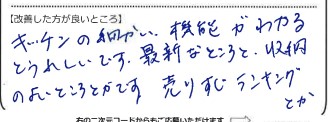 【改善した方が良いところ】
キッチンの細かい、機能がわかる
とうれしいです。最新なところと、収納
のよいところとかです 売りすじランキング
とか
右の二次元コードからもご応募いただけます